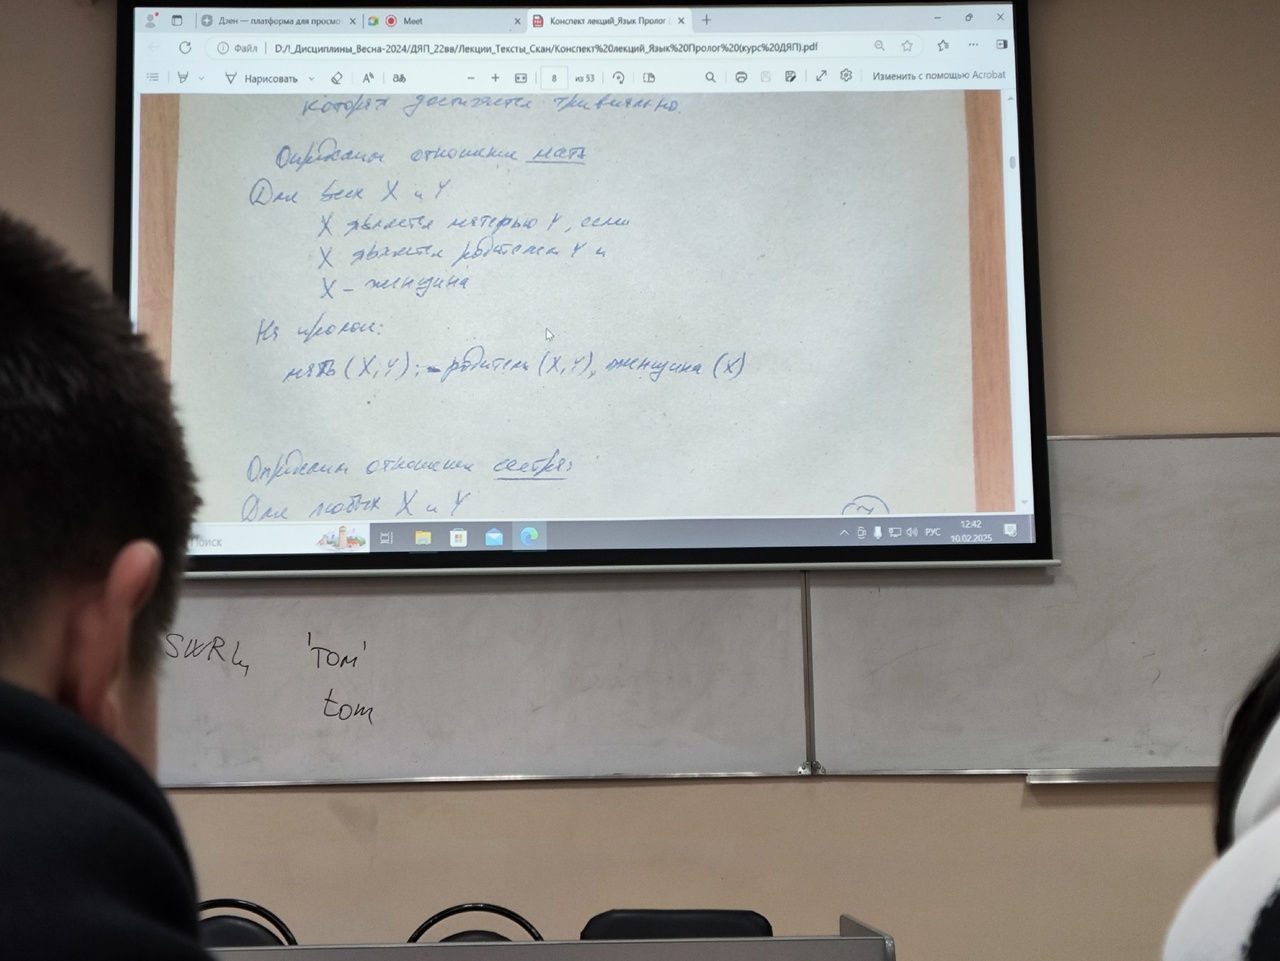 Дзен — платформа для просмо
Meet
Конспект лекций_Язык Пролог (
Файл
D:/I_Дисциплины_Весна-2024/ДЯП_22вв/Лекции_Тексты_Скан/Конспект%20лекций_Язык%20Пролог%20(курс%20ДЯП).pdf
Нарисовать
8
из 53
Изменить с помощью Acrobat
которая достигается тривиально.
Определим отношение мать
Для всех X и Y
X является матерью Y, если
X является родителем Y и
X – женщина
На прологе:
мать (X,Y) :- родитель (X,Y), женщина (X)
Определим отношение сестра:
Для любых X и Y
Поиск
РУС
12:42
10.02.2025
SWRL
'Tom'
tom